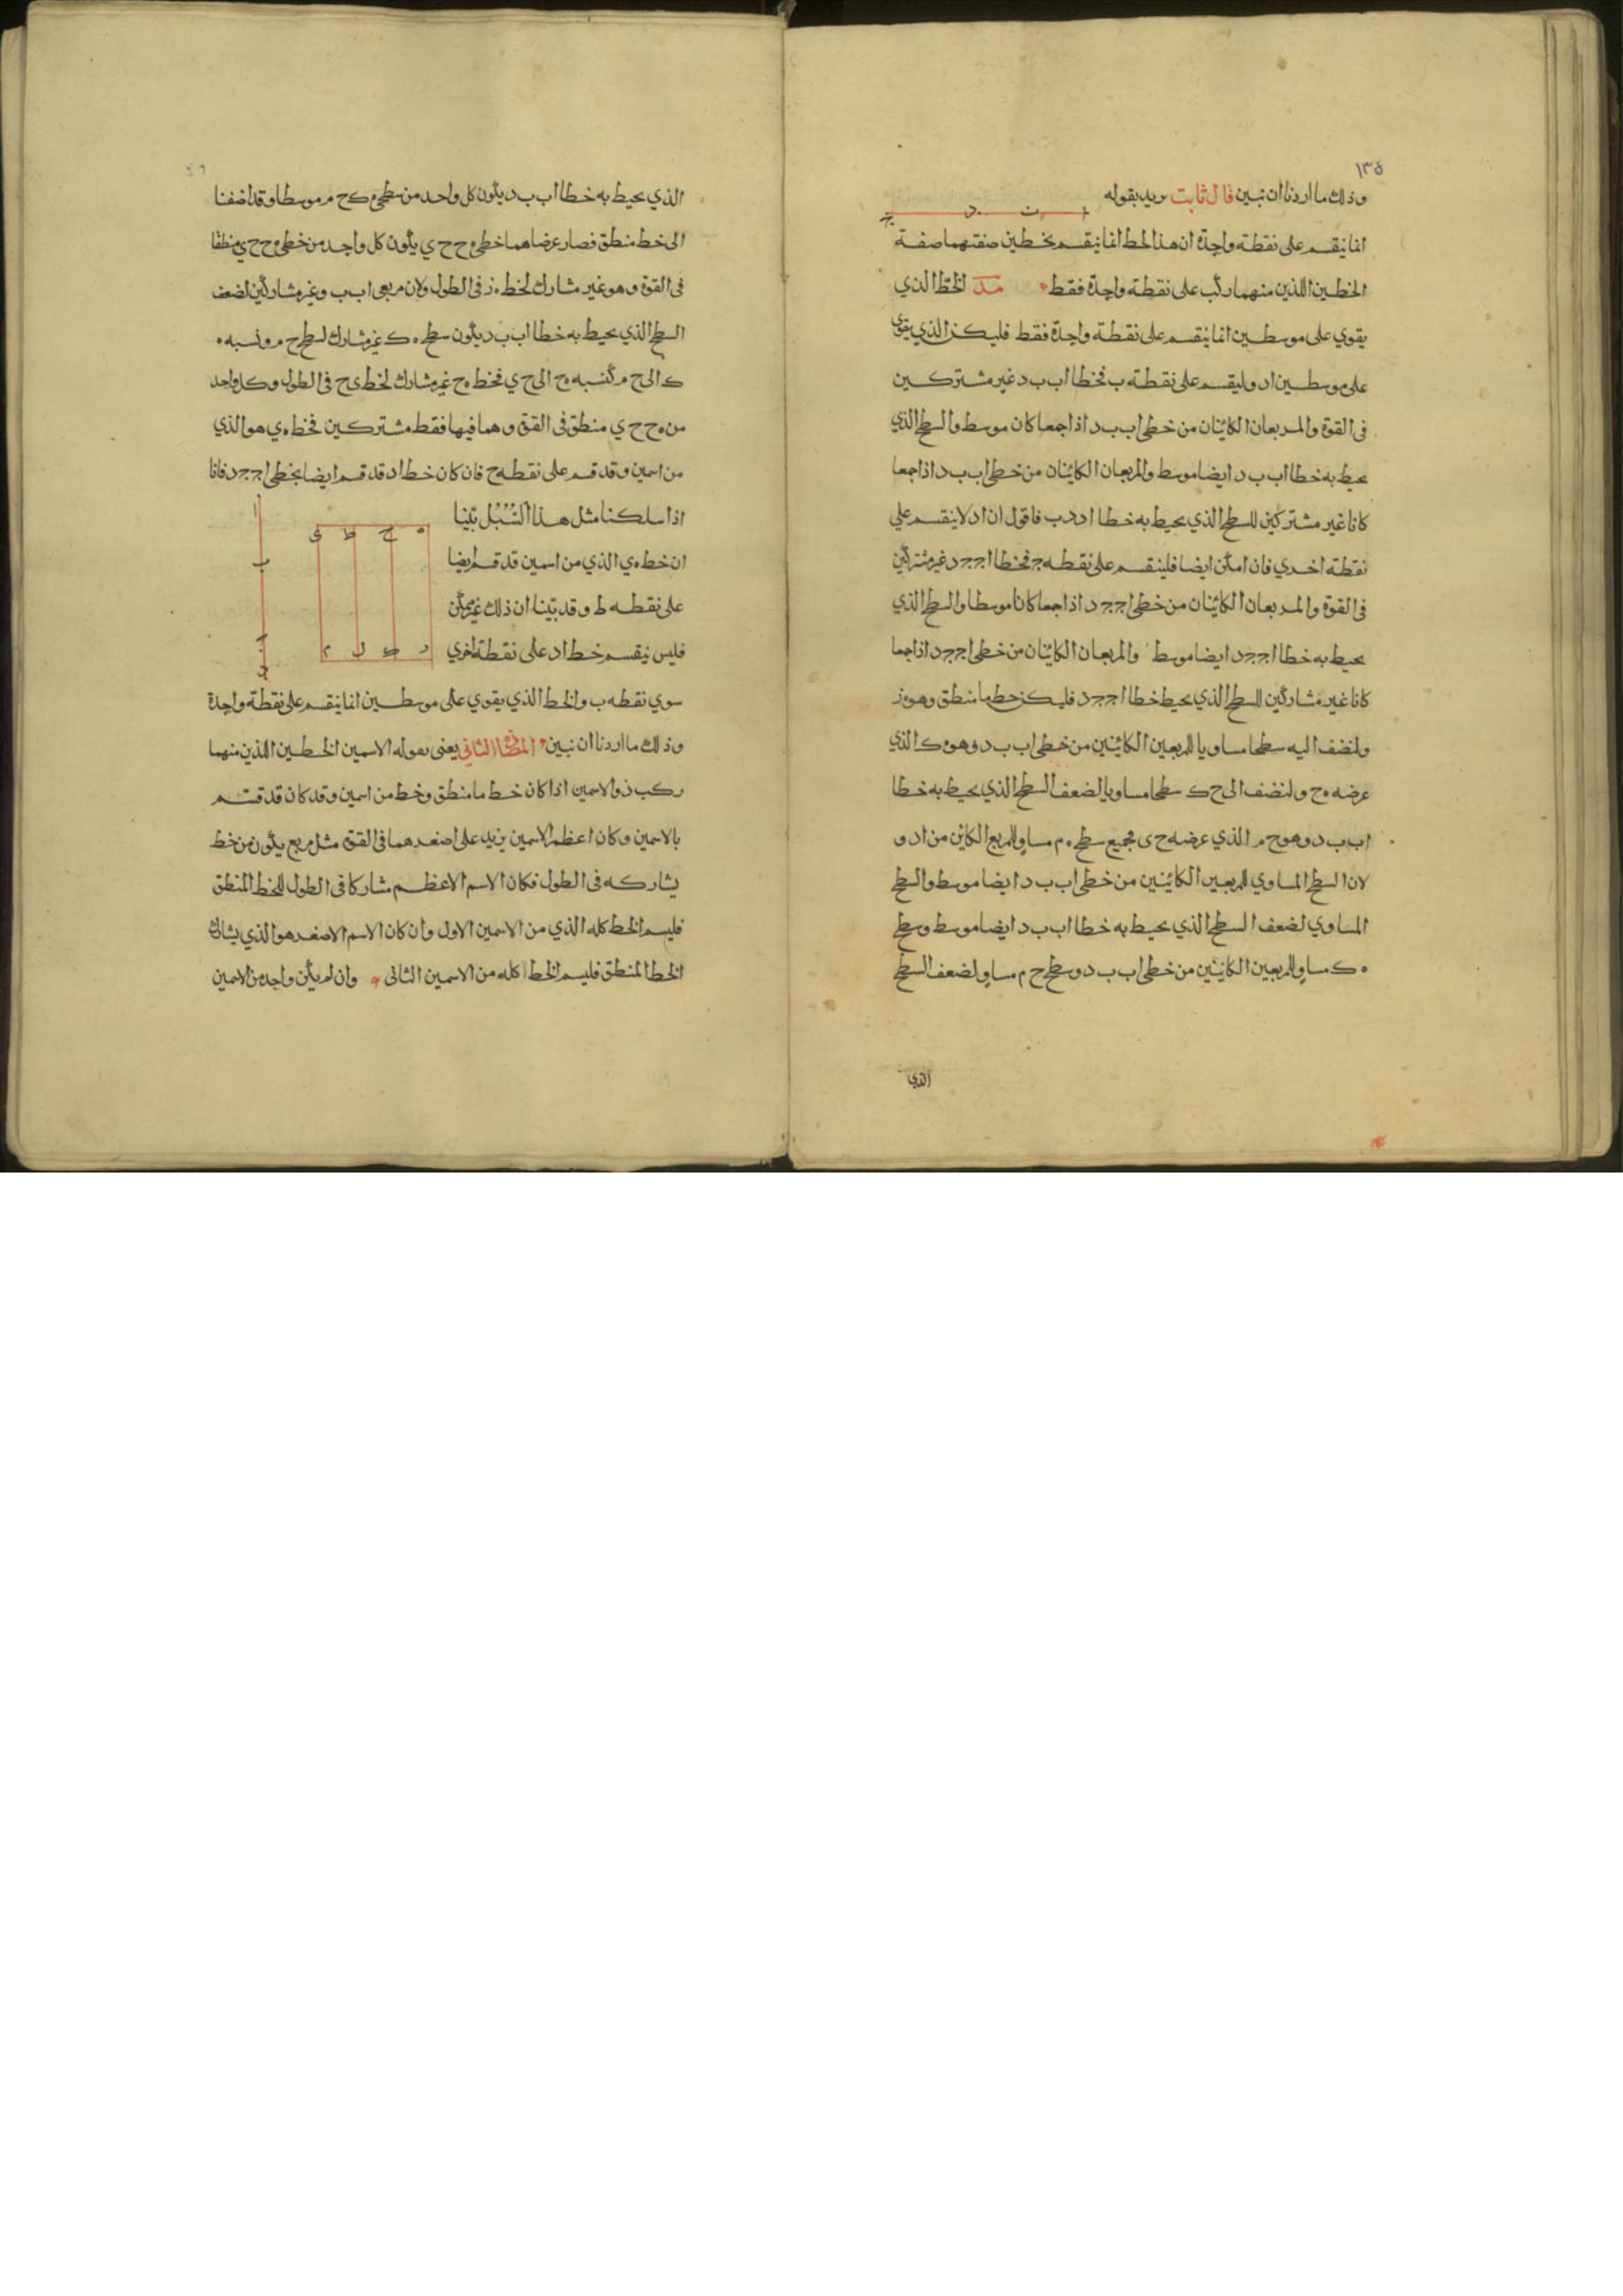 ١٣٥
وذلك ما اردنا ان نبين قال ثابت يريد بقوله
انما ينقسم على نقطة واحدة ان هذا الخط انما ينقسم بخطين صفتهما صفة
الخطين اللذين منهما ركب على نقطة واحدة فقط مد الخط الذي
يقوي على موسطين انما ينقسم على نقطة واحدة فقط فليكن الذي يقوى
على موسطين اد ولينقسم على نقطة ب فخطا اب ب د غير مشتركين
في القوة والمربعان الكائنان من خطي اب ب د اذا جمعا كان موسط والسطح الذي
يحيط به خطا اب ب د ايضا موسط والمربعان الكائنان من خطي اب ب د اذا جمعا
كانا غير مشتركين للسطح الذي يحيط به خطا اد د ب فاقول ان اد لا ينقسم علي
نقطة اخري فان امكن ايضا فلينقسم على نقطه ج فخطا اج ج د غير مشتركين
في القوة والمربعان الكائنان من خطي اج ج د اذا جمعا كانا موسطا والسطح الذي
يحيط به خطا اج ج د ايضا موسط والمربعان الكائنان من خطي اج ج د اذا جمعا
كانا غير مشاركين للسطح الذي يحيط خطا اج ج د فليكن خط ما منطق وهو ه ز
ولنضف اليه سطحا مساويا للمربعين الكائنين من خطي اب ب د وهو ه ك الذي
عرضه ه ح ولنضف الى ح ك سطحا مساويا لضعف السطح الذي يحيط به خطا
اب ب د وهو ح م الذي عرضه ح ى فجميع سطح ه م مساو للمربع الكائن من اد و
لان السطح المساوي للمربعين الكائنين من خطي اب ب د ايضا موسط والسطح
المساوي لضعف السطح الذي يحيط به خطا اب ب د ايضا موسط وسطح
ه ك مساو للمربعين الكائنين من خطي اب ب د وسطح ح م مساو لضعف السطح
الذي
الذي يحيط به خطا اب ب د يكون كل واحد من سطحي ه ك ح م موسطا وقد اضفنا
الى خط منطق فصار عرضاهما خطي ه ح ح ي يكون كل واحد من خطي ه ح ح ي منطقا
في القوة وهو غير مشارك لخط ه ز في الطول ولان مربعي اب ب د غير مشاركين لضعف
السطح الذي يحيط به خطا اب ب د يكون سطح ه ك غير مشارك لسطح ح م ونسبه ه
ك الى ح م كنسبه ه ح الى ح ي فخط ه ح غير مشارك لخط ى ح في الطول وكل واحد
من ه ح ح ي منطق في القوة وهما فيها فقط مشتركين فخط ه ي هو الذي
من اسمين وقد قسم على نقطه ح فان كان خط اد قد قسم ايضا بخطي اج ج د فانا
اذا سلكنا مثل هذا السبل تبينا
ان خط ه ي الذي من اسمين قد قسم ايضا
على نقطه ط وقد تبينا ان ذلك غير ممكن
فليس ينقسم خط اد على نقطة اخري
سوي نقطه ب والخط الذي يقوي على موسطين انما ينقسم على نقطة واحدة
وذلك ما اردنا ان نبين الثاني يعنى بقوله الاسمين الخطين اللذين منهما
ركب ذو الاسمين اذا كان خط ما منطق وخط من اسمين وقد كان قد قسم
بالاسمين وكان اعظم الاسمين يزيد على اصغرهما في القوة مثل مربع يكون من خط
يشاركه في الطول فكان الاسم الاعظم مشاركا في الطول للخط المنطق
فليسم الخط كله الذي من الاسمين الاول وان كان الاسم الاصغر هو الذي يشارك
الخط المنطق فليسم الخط كله من الاسمين الثاني وان لم يكن واحد من الاسمين